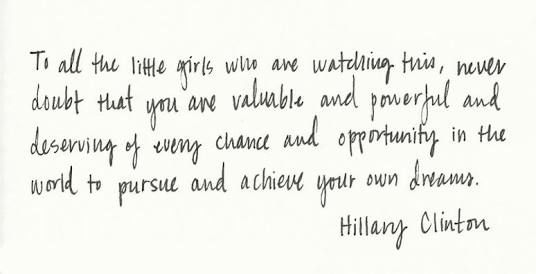 To all the little girls who are watching this, never
doubt that you are valuable and powerful and
deserving of every chance and opportunity in the
world to pursue and achieve your own dreams.
Hillary Clinton